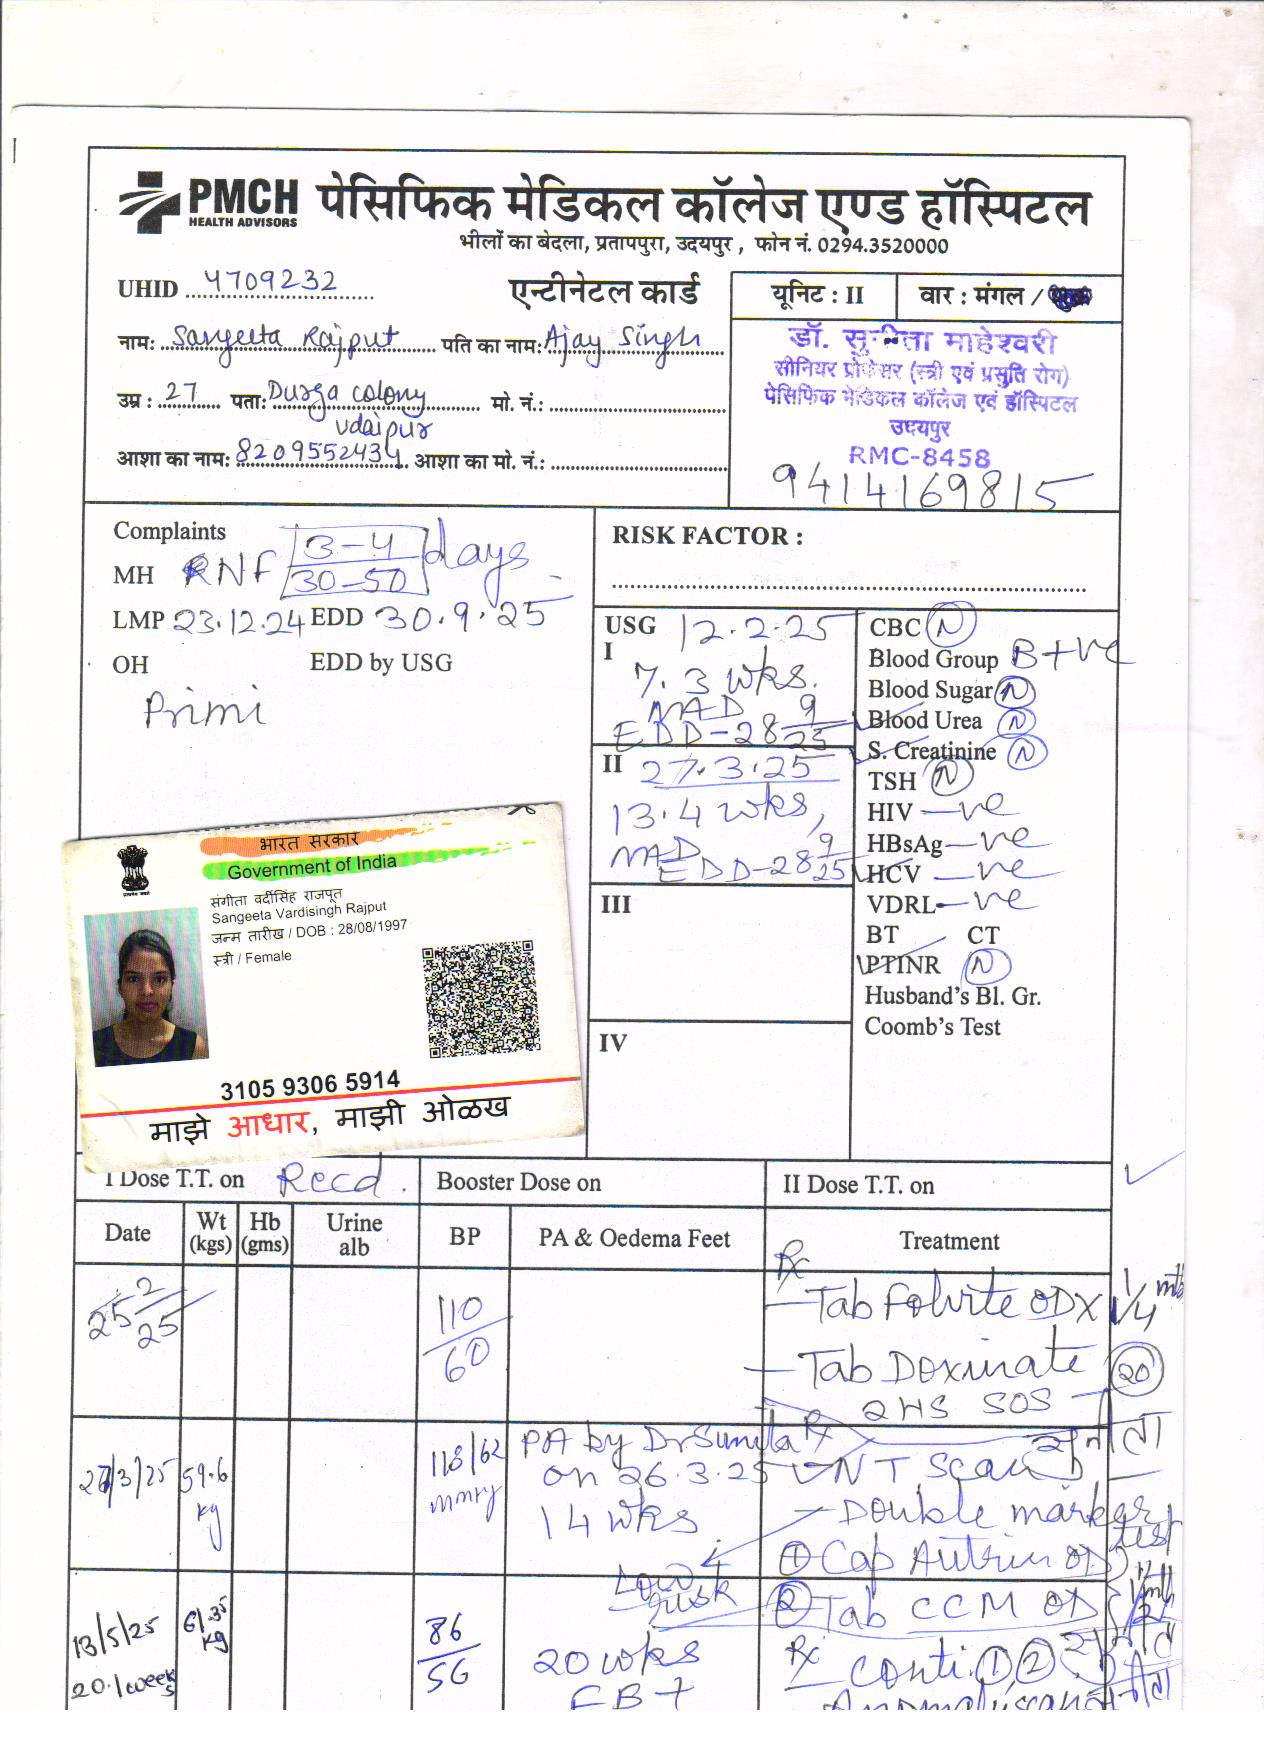 PMCH
HEALTH ADVISORS
पेसिफिक मेडिकल कॉलेज एण्ड हॉस्पिटल
भीलों का बेदला, प्रतापपुरा, उदयपुर , फोन नं. 0294.3520000
UHID 4709232 एन्टीनेटल कार्ड यूनिट : II वार : मंगल /
नाम: Sangeeta Rajput पति का नाम: Ajay Singh
उम्र : 27 पता: Durga colony मो. नं.:
udaipur
आशा का नाम: 8209552434 आशा का मो. नं.:
डॉ. सुनीता माहेश्वरी
सीनियर प्रोफेसर (स्त्री एवं प्रसुति रोग)
पेसिफिक मेडिकल कॉलेज एवं हॉस्पिटल
उदयपुर
RMC-8458
9414169815
Complaints
MH RNF 3-4/30-50 days
LMP 23.12.24 EDD 30.9.25
OH EDD by USG
Primi
RISK FACTOR :
USG 12.2.25
I
7.3 wks.
MAD
EDD-28 9/25
II 27.3.25
13.4 wks,
MAD
EDD-28 9/25
III
IV
CBC N
Blood Group B+ve
Blood Sugar N
Blood Urea N
S. Creatinine N
TSH N
HIV -ve
HBsAg -ve
HCV -ve
VDRL -ve
BT CT
PTINR N
Husband's Bl. Gr.
Coomb's Test
भारत सरकार
Government of India
संगीता वर्दीसिंह राजपूत
Sangeeta Vardisingh Rajput
जन्म तारीख / DOB : 28/08/1997
स्त्री / Female
3105 9306 5914
माझे आधार, माझी ओळख
I Dose T.T. on Recd. Booster Dose on II Dose T.T. on
Date Wt (kgs) Hb (gms) Urine alb BP PA & Oedema Feet Treatment
25 2/25 110/60 Rx
- Tab Folvite OD X 1/4 1 mth
- Tab Doxinate 20
2 HS SOS
सुनीता
27/3/25 59.6 kg 118/62 mmHg PA by Dr Sunita Rx
on 26.3.25 - NT Scan
14 wks - Double marker test
Low risk
1 Cap Autrin OD
2 Tab CCM OD
1 mth
13/5/25 61.35 kg 86/56 20 wks Rx Conti. 1 2
20.1 weeks
FB +
Anomaly scan